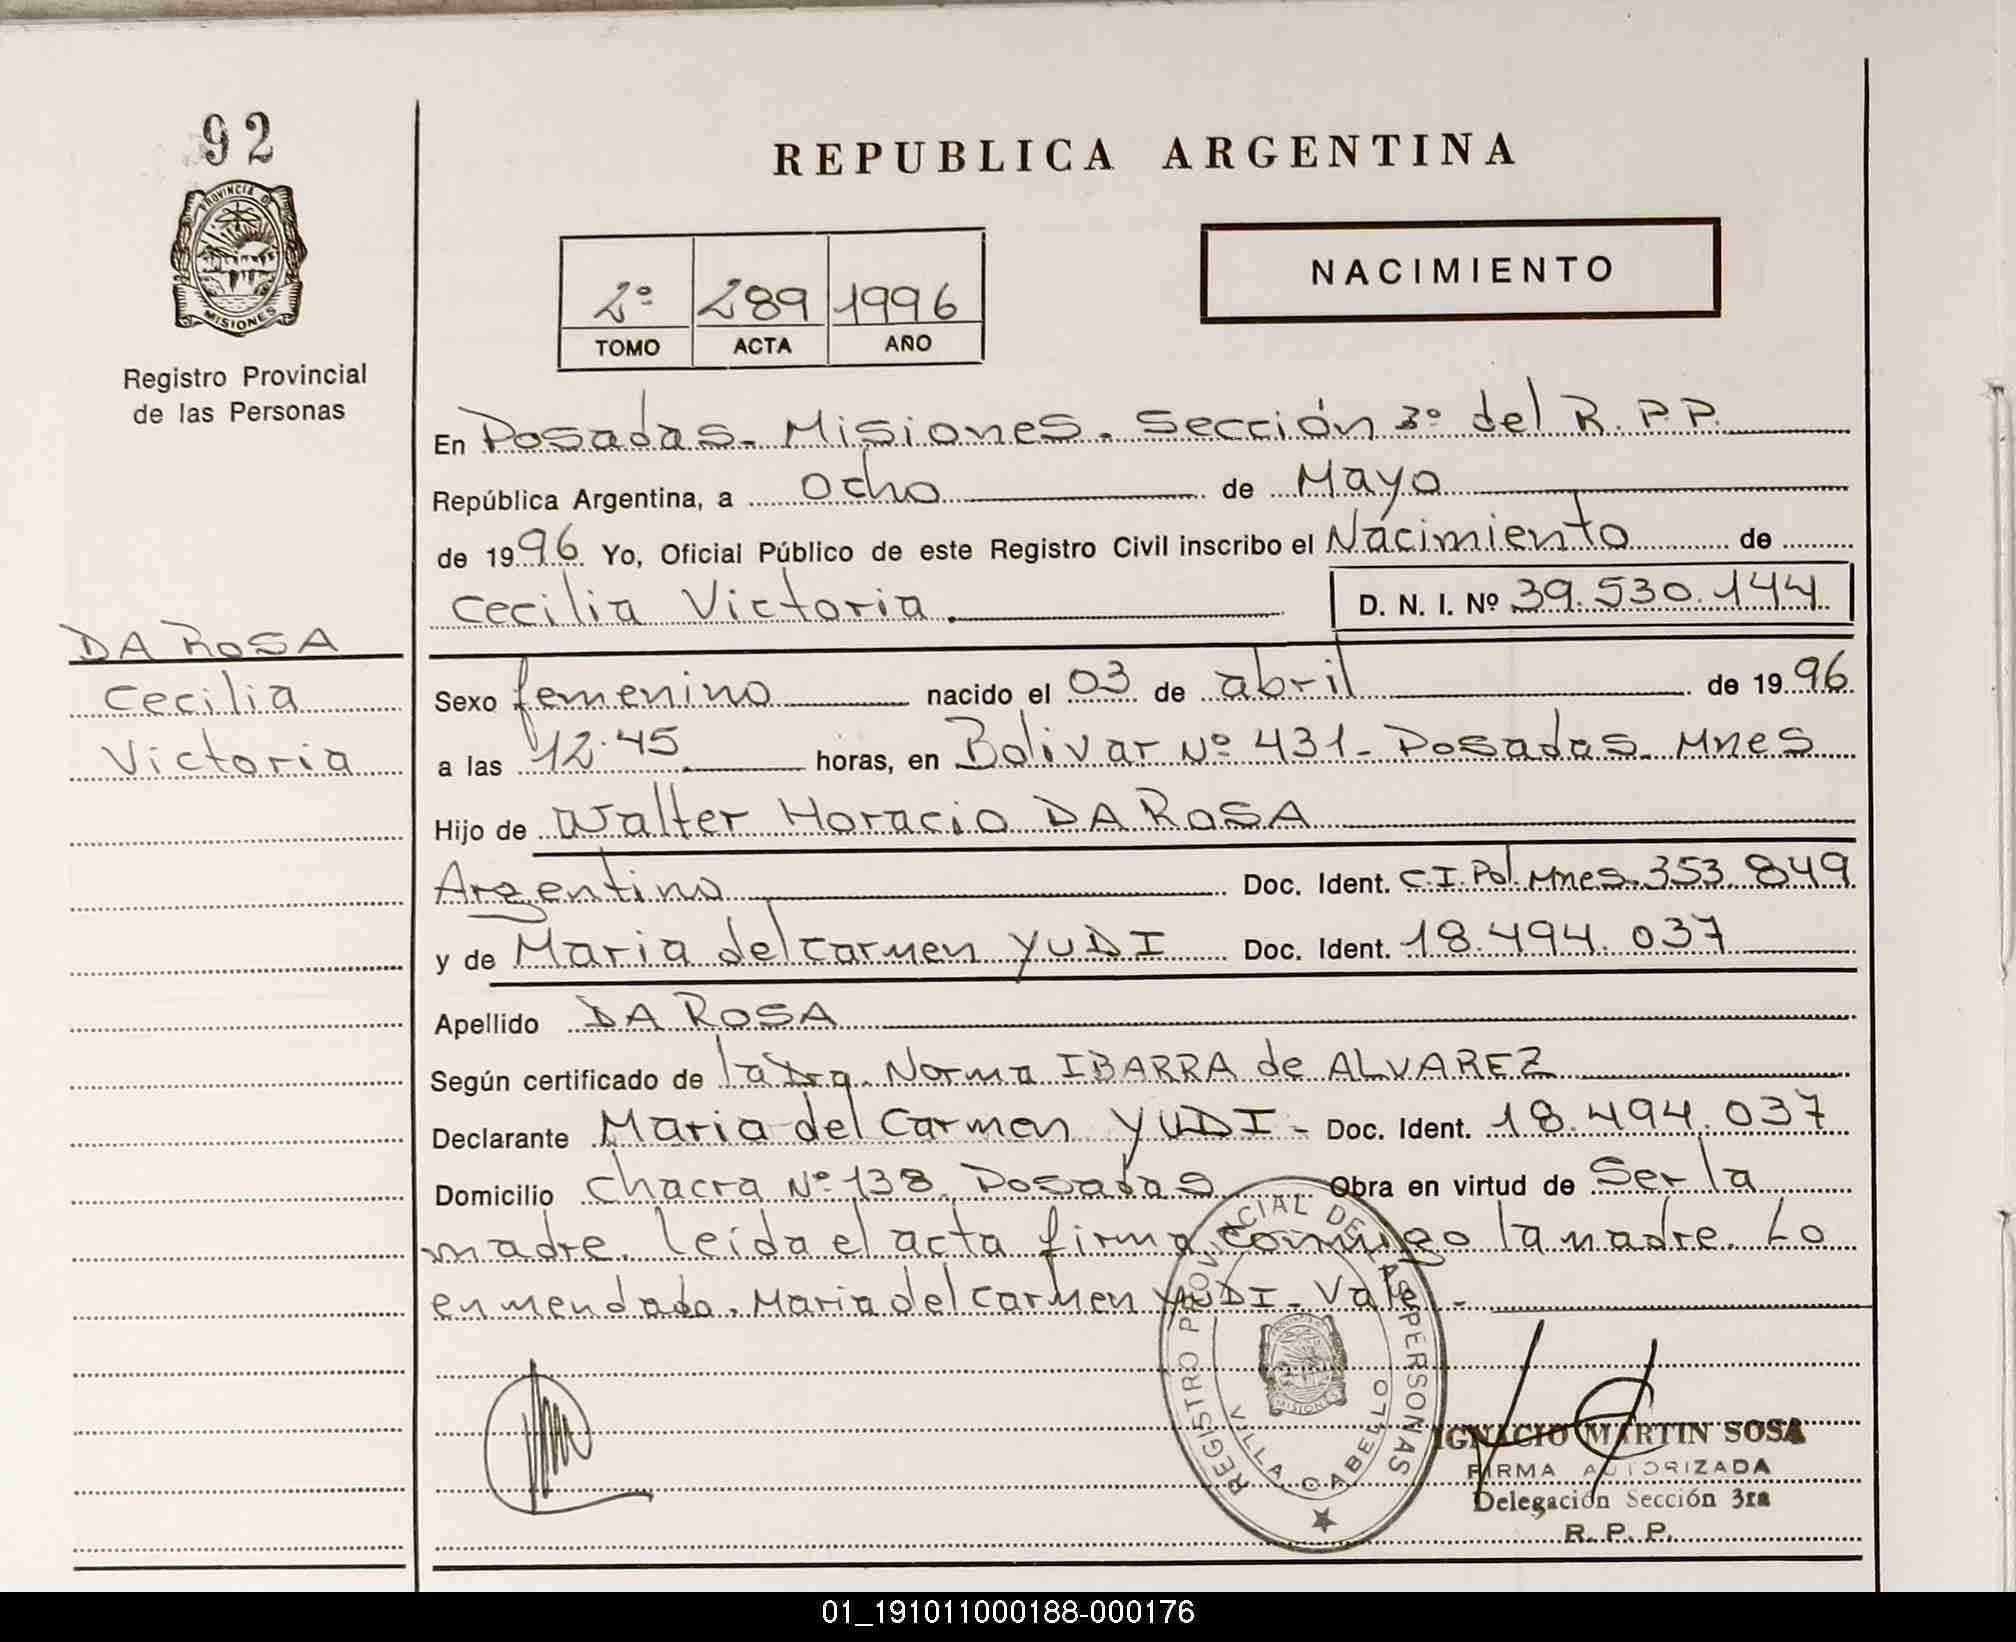 92
PROVINCIA DE
MISIONES
Registro Provincial
de las Personas
DA ROSA
Cecilia
Victoria
REPUBLICA ARGENTINA
2º 289 1996
TOMO ACTA AÑO
NACIMIENTO
En Posadas. Misiones. Sección 3º del R.P.P.
República Argentina, a Ocho de Mayo
de 1996 Yo, Oficial Público de este Registro Civil inscribo el Nacimiento de
Cecilia Victoria. D. N. I. Nº 39.530.144
Sexo femenino nacido el 03 de abril de 1996
a las 12.45 horas, en Bolivar Nº 431- Posadas. Mnes
Hijo de Walter Horacio DA ROSA
Argentino Doc. Ident. C.I. Pol. Mnes. 353.849
y de Maria del Carmen YUDI Doc. Ident. 18.494.037
Apellido DA ROSA
Según certificado de la Dra. Norma IBARRA de ALVAREZ
Declarante Maria del Carmen YUDI- Doc. Ident. 18.494.037
Domicilio Chacra Nº 138. Posadas Obra en virtud de Ser la
madre. leida el acta firma conmigo la madre. Lo
enmendado. Maria del Carmen YUDI- Vale-
REGISTRO PROVINCIAL DE LAS PERSONAS
MISIONES
VILLA CABELLO
IGNACIO MARTIN SOSA
FIRMA AUTORIZADA
Delegación Sección 3ra
R. P. P.
01_191011000188-000176